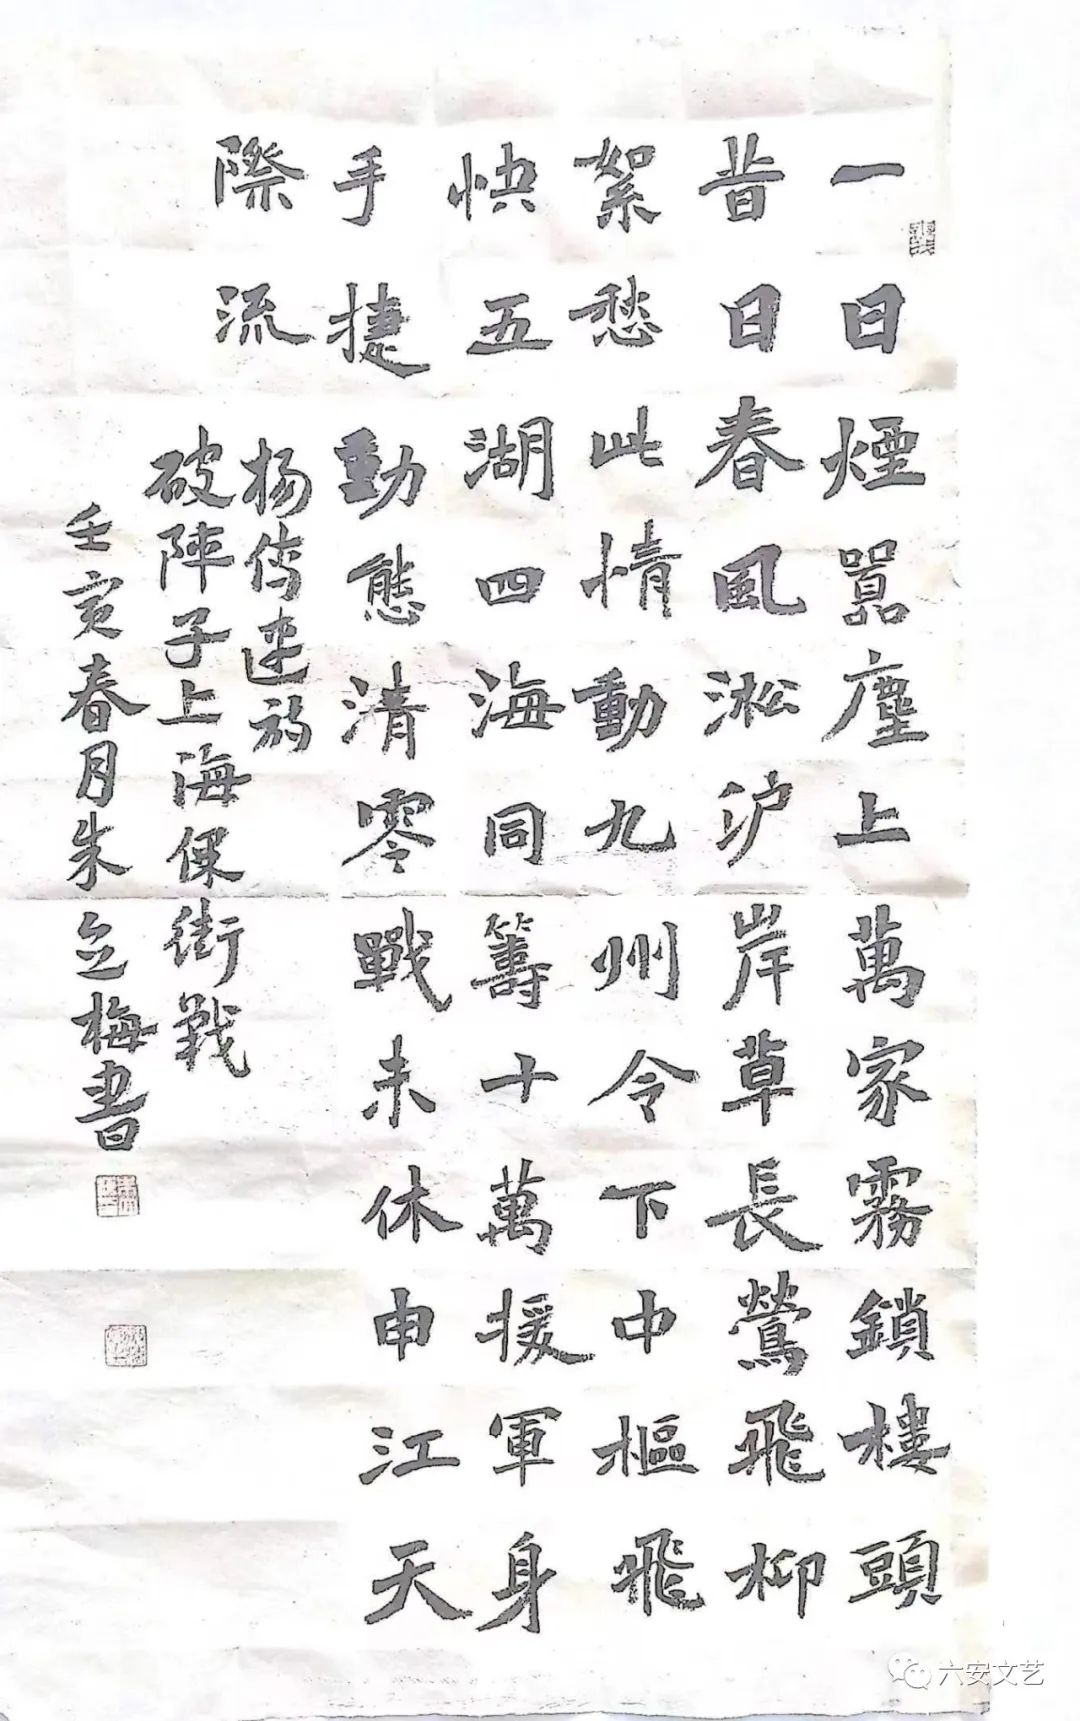 一日煙囂塵上萬家霧鎖樓頭
昔日春風淞沪岸草長鶯飛柳
絮愁此情動九州令下中樞飛
快五湖四海同籌十萬援軍身
手捷動態清零戰未休申江天
際流
杨传迷词
破陣子上海保衛戰
壬寅春月朱立梅書
六安文艺